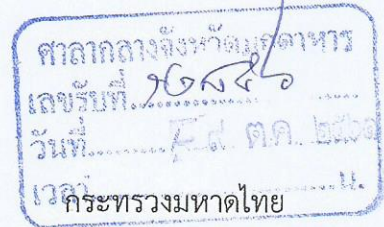 ศาลากลางจังหวัดมุกดาหาร
เลขรับที่
วันที่ ๙ ต.ค. ๒๕๖๑
เวลา น.
กระทรวงมหาดไทย